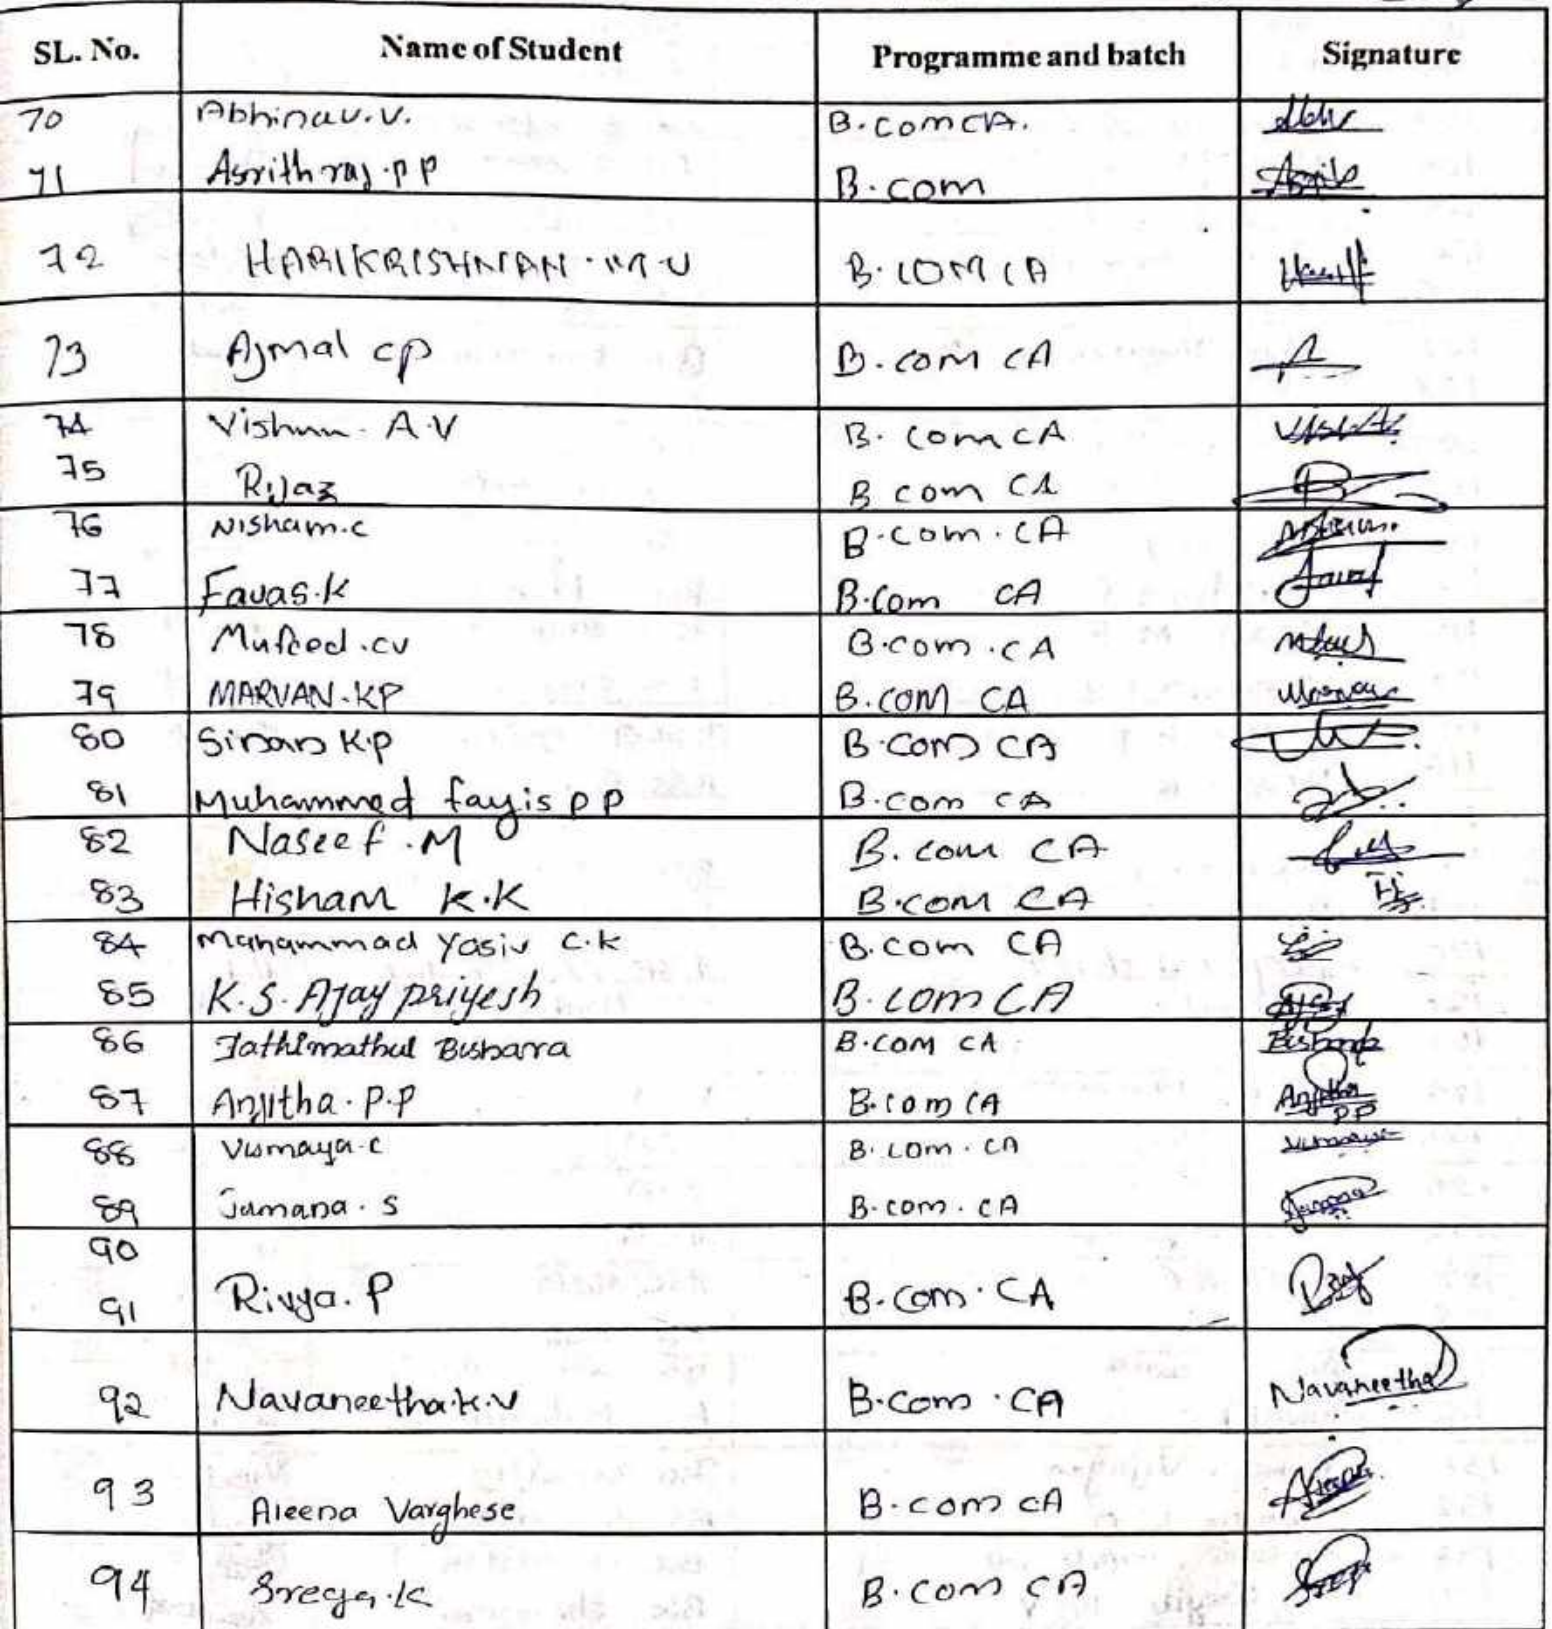 SL. No. Name of Student Programme and batch Signature
70 Abhinav.V. B.com CA.
71 Asrith raj.p p B.com
72 HARIKRISHNAN.M.U B.COM CA
73 Ajmal cp B.com CA
74 Vishnu A.V B.com CA
75 Rijaz B com CA
76 Nisham.c B.com.CA
77 Favas.k B.Com CA
78 Mufeed.cv B.com.CA
79 MARVAN.KP B.COM CA
80 Sinan K.p B.com CA
81 Muhammed fayis p p B.com CA
82 Naseef.M B.com CA
83 Hisham K.K B.com CA
84 Mohammad Yasir C.K B.com CA
85 K.S.Ajay priyesh B.com CA
86 Fathimathul Bushara B.COM CA Bishara
87 Anjitha.P.P B.com CA Anjitha PP
88 Vismaya.c B.com.CA
89 Jumana.S B.com.CA
90
91 Rivya.P B.Com.CA
92 Navaneetha.K.V B.com.CA Navaneetha
93 Aleena Varghese B.com CA
94 Sreya.K B.com CA